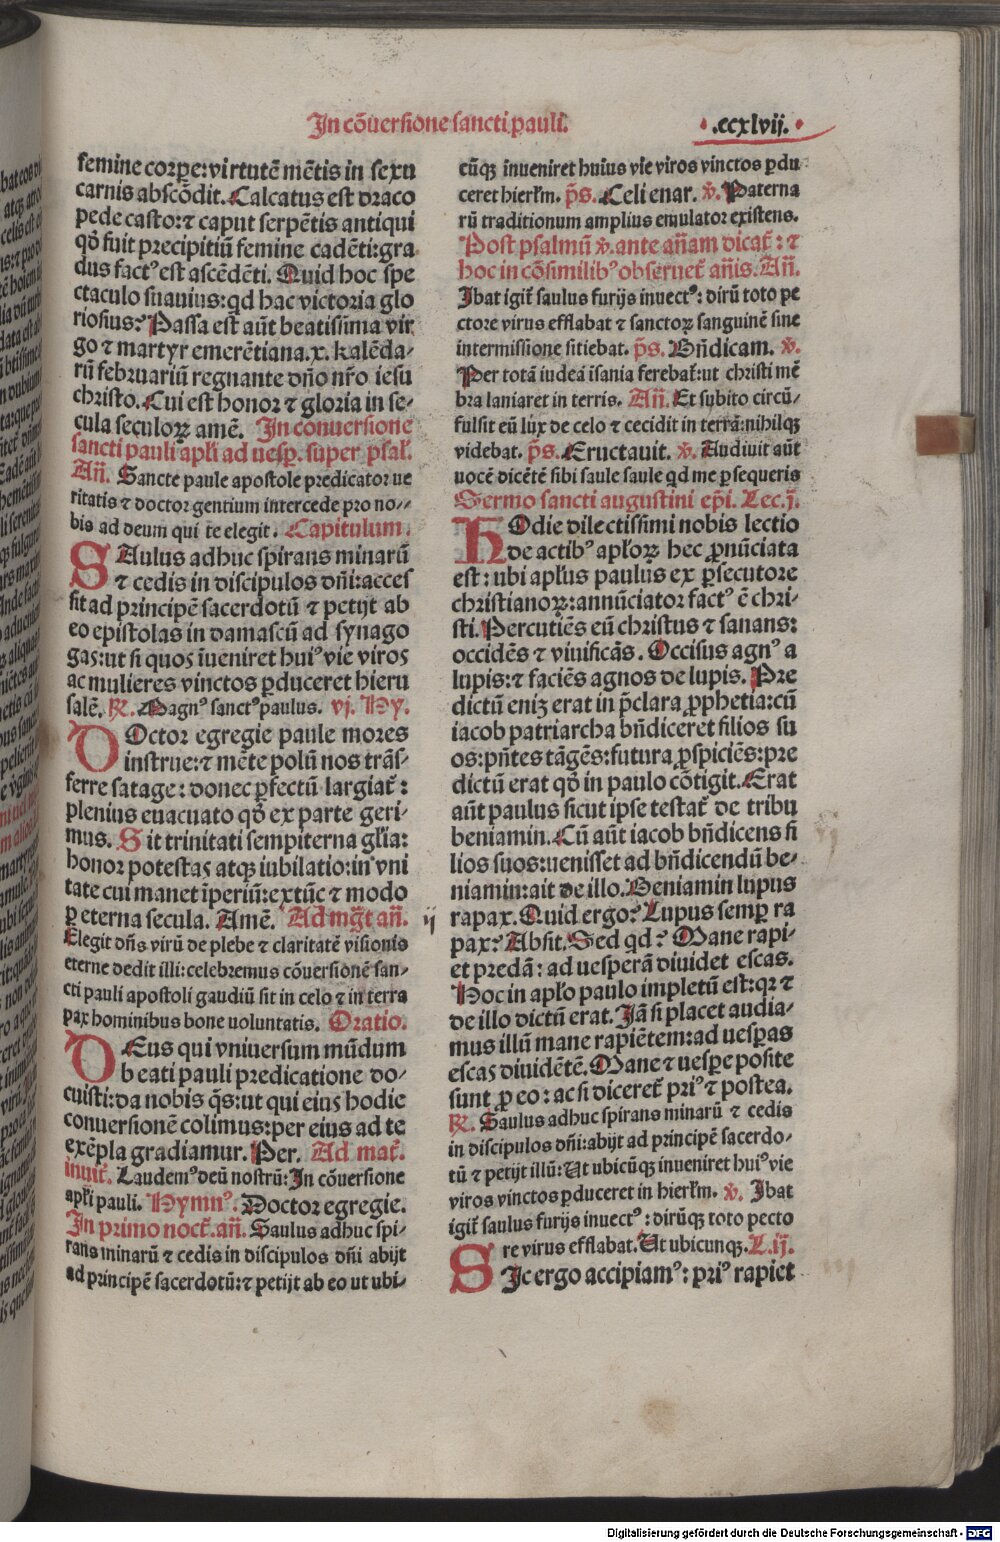 In cōuersione sancti pauli.
.ccxlvij.
femine corꝑe: virtutē mētis in sexu
carnis abscōdit. Calcatus est draco
pede casto: ⁊ caput serpētis antiqui
qd̄ fuit precipitiū femine cadēti: gra
dus factꝰ est ascēdēti. Quid hoc spe
ctaculo suauius: qd hac victoria glo
riosius? Passa est aūt beatissima vir
go ⁊ martyr emerētiana. x. kalēda⸗
rū februariū regnante dn̄o nr̄o iesu
christo. Cui est honor ⁊ gloria in se⸗
cula seculoꝝ amē. In conuersione
sancti pauli apl̄i ad uesꝑ. super psal̄.
An̄. Sancte paule apostole predicator ue
ritatis ⁊ doctor gentium intercede pro no⸗
bis ad deum qui te elegit. Capitulum.
SAulus adhuc spirans minarū
⁊ cedis in discipulos dn̄i: acces
sit ad principē sacerdotū ⁊ petijt ab
eo epistolas in damascū ad synago
gas: ut si quos īueniret huiꝰ vie viros
ac mulieres vinctos ꝑduceret hieru
salē. ℞. Magnꝰ sanctꝰ paulus. vj. Hy.
DOctor egregie paule mores
instrue: ⁊ mēte polū nos trās⸗
ferre satage: donec ꝑfectū largiat̄:
plenius euacuato qd̄ ex parte geri⸗
mus. Sit trinitati sempiterna gl̄ia:
honor potestas atqꝫ iubilatio: in vni
tate cui manet īperiū: extūc ⁊ modo
ꝑ eterna secula. Amē. Ad mḡt an̄.
Elegit dn̄s virū de plebe ⁊ claritatē visionis
eterne dedit illi: celebremus cōuersionē san⸗
cti pauli apostoli gaudiū sit in celo ⁊ in terra
pax hominibus bone uoluntatis. Oratio.
DEus qui vniuersum mūdum
beati pauli predicatione do⸗
cuisti: da nobis q̄s: ut qui eius hodie
conuersionē colimus: per eius ad te
exēpla gradiamur. Per. Ad mat̄.
inuit̄. Laudemꝰ deū nostrū: In cōuersione
apl̄i pauli. Hymnꝰ. Doctor egregie.
In primo noct̄. an̄. Saulus adhuc spi⸗
rans minarū ⁊ cedis in discipulos dn̄i abijt
ad principē sacerdotū: ⁊ petijt ab eo ut ubi⸗
ij
cūqꝫ inueniret huius vie viros vinctos ꝑdu
ceret hierl̄m. p̄s. Celi enar. ℣. Paterna
rū traditionum amplius emulator existens.
Post psalmū ℣. ante an̄am dicat̄: ⁊
hoc in cōsimilibꝰ obseruet̄ an̄is. An̄.
Ibat igit̄ saulus furijs inuectꝰ: dirū toto pe
ctore virus efflabat ⁊ sanctoꝝ sanguinē sine
intermissione sitiebat. p̄s. Bn̄dicam. ℣.
Per totā iudeā īsania ferebat̄: ut christi mē
bra laniaret in terris. An̄. Et subito circū⸗
fulsit eū lux de celo ⁊ cecidit in terrā: nihilqꝫ
videbat. p̄s. Eructauit. ℣. Audiuit aūt
uocē dicētē sibi saule saule qd me ꝑsequeris
Sermo sancti augustini ep̄i. Lec. j.
HOdie dilectissimi nobis lectio
de actibꝰ apl̄oꝝ hec ꝓnūciata
est: ubi apl̄us paulus ex ꝑsecutore
christianoꝝ: annūciator factꝰ ē chri⸗
sti. Percutiēs eū christus ⁊ sanans:
occidēs ⁊ viuificās. Occisus agnꝰ a
lupis: ⁊ faciēs agnos de lupis. Pre
dictū eniꝫ erat in p̄clara ꝓphetia: cū
iacob patriarcha bn̄diceret filios su
os: pn̄tes tāgēs: futura ꝓspiciēs: pre
dictū erat qd̄ in paulo cōtigit. Erat
aūt paulus sicut ipse testat̄ de tribu
beniamin. Cū aūt iacob bn̄dicens fi
lios suos: uenisset ad bn̄dicendū be⸗
niamin: ait de illo. Beniamin lupus
rapax. Quid ergo? Lupus semꝑ ra
pax? Absit. Sed qd? Mane rapi⸗
et predā: ad uesperā diuidet escas.
Hoc in apl̄o paulo impletū est: qꝛ ⁊
de illo dictū erat. Iā si placet audia⸗
mus illū mane rapiētem: ad uesꝑas
escas diuidētē. Mane ⁊ uesꝑe posite
sunt ꝓ eo: ac si diceret̄ priꝰ ⁊ postea.
℞. Saulus adhuc spirans minarū ⁊ cedis
in discipulos dn̄i: abijt ad principē sacerdo⸗
tū ⁊ petijt illū: Ut ubicūqꝫ inueniret huiꝰ vie
viros vinctos ꝑduceret in hierl̄m. ℣. Ibat
igit̄ saulus furijs inuectꝰ: dirūqꝫ toto pecto
re virus efflabat. Ut ubicunqꝫ. L. ij.
SIc ergo accipiamꝰ: priꝰ rapiet
Digitalisierung gefördert durch die Deutsche Forschungsgemeinschaft - DFG